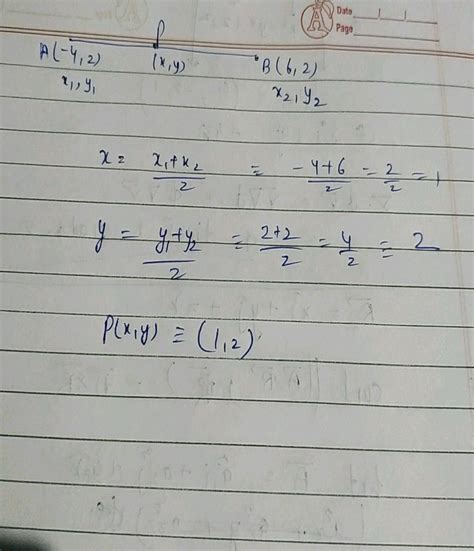 Date
Page
P
A(-4,2) (x,y) B(6,2)
x₁,y₁ x₂,y₂
x = x₁+x₂/2 = -4+6/2 = 2/2 = 1
y = y₁+y₂/2 = 2+2/2 = 4/2 = 2
P(x,y) ≡ (1,2)